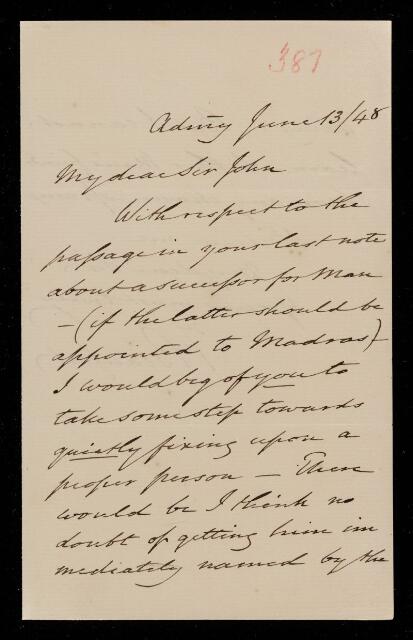 387
Admy June 13/48
My dear Sir John
With respect to the
passage in your last note
about a successor for Man
— (if the latter should be
appointed to Madras)
I would beg of you to
take some step towards
quietly fixing upon a
proper person — There
would be I think no
doubt of getting him im
mediately named by the